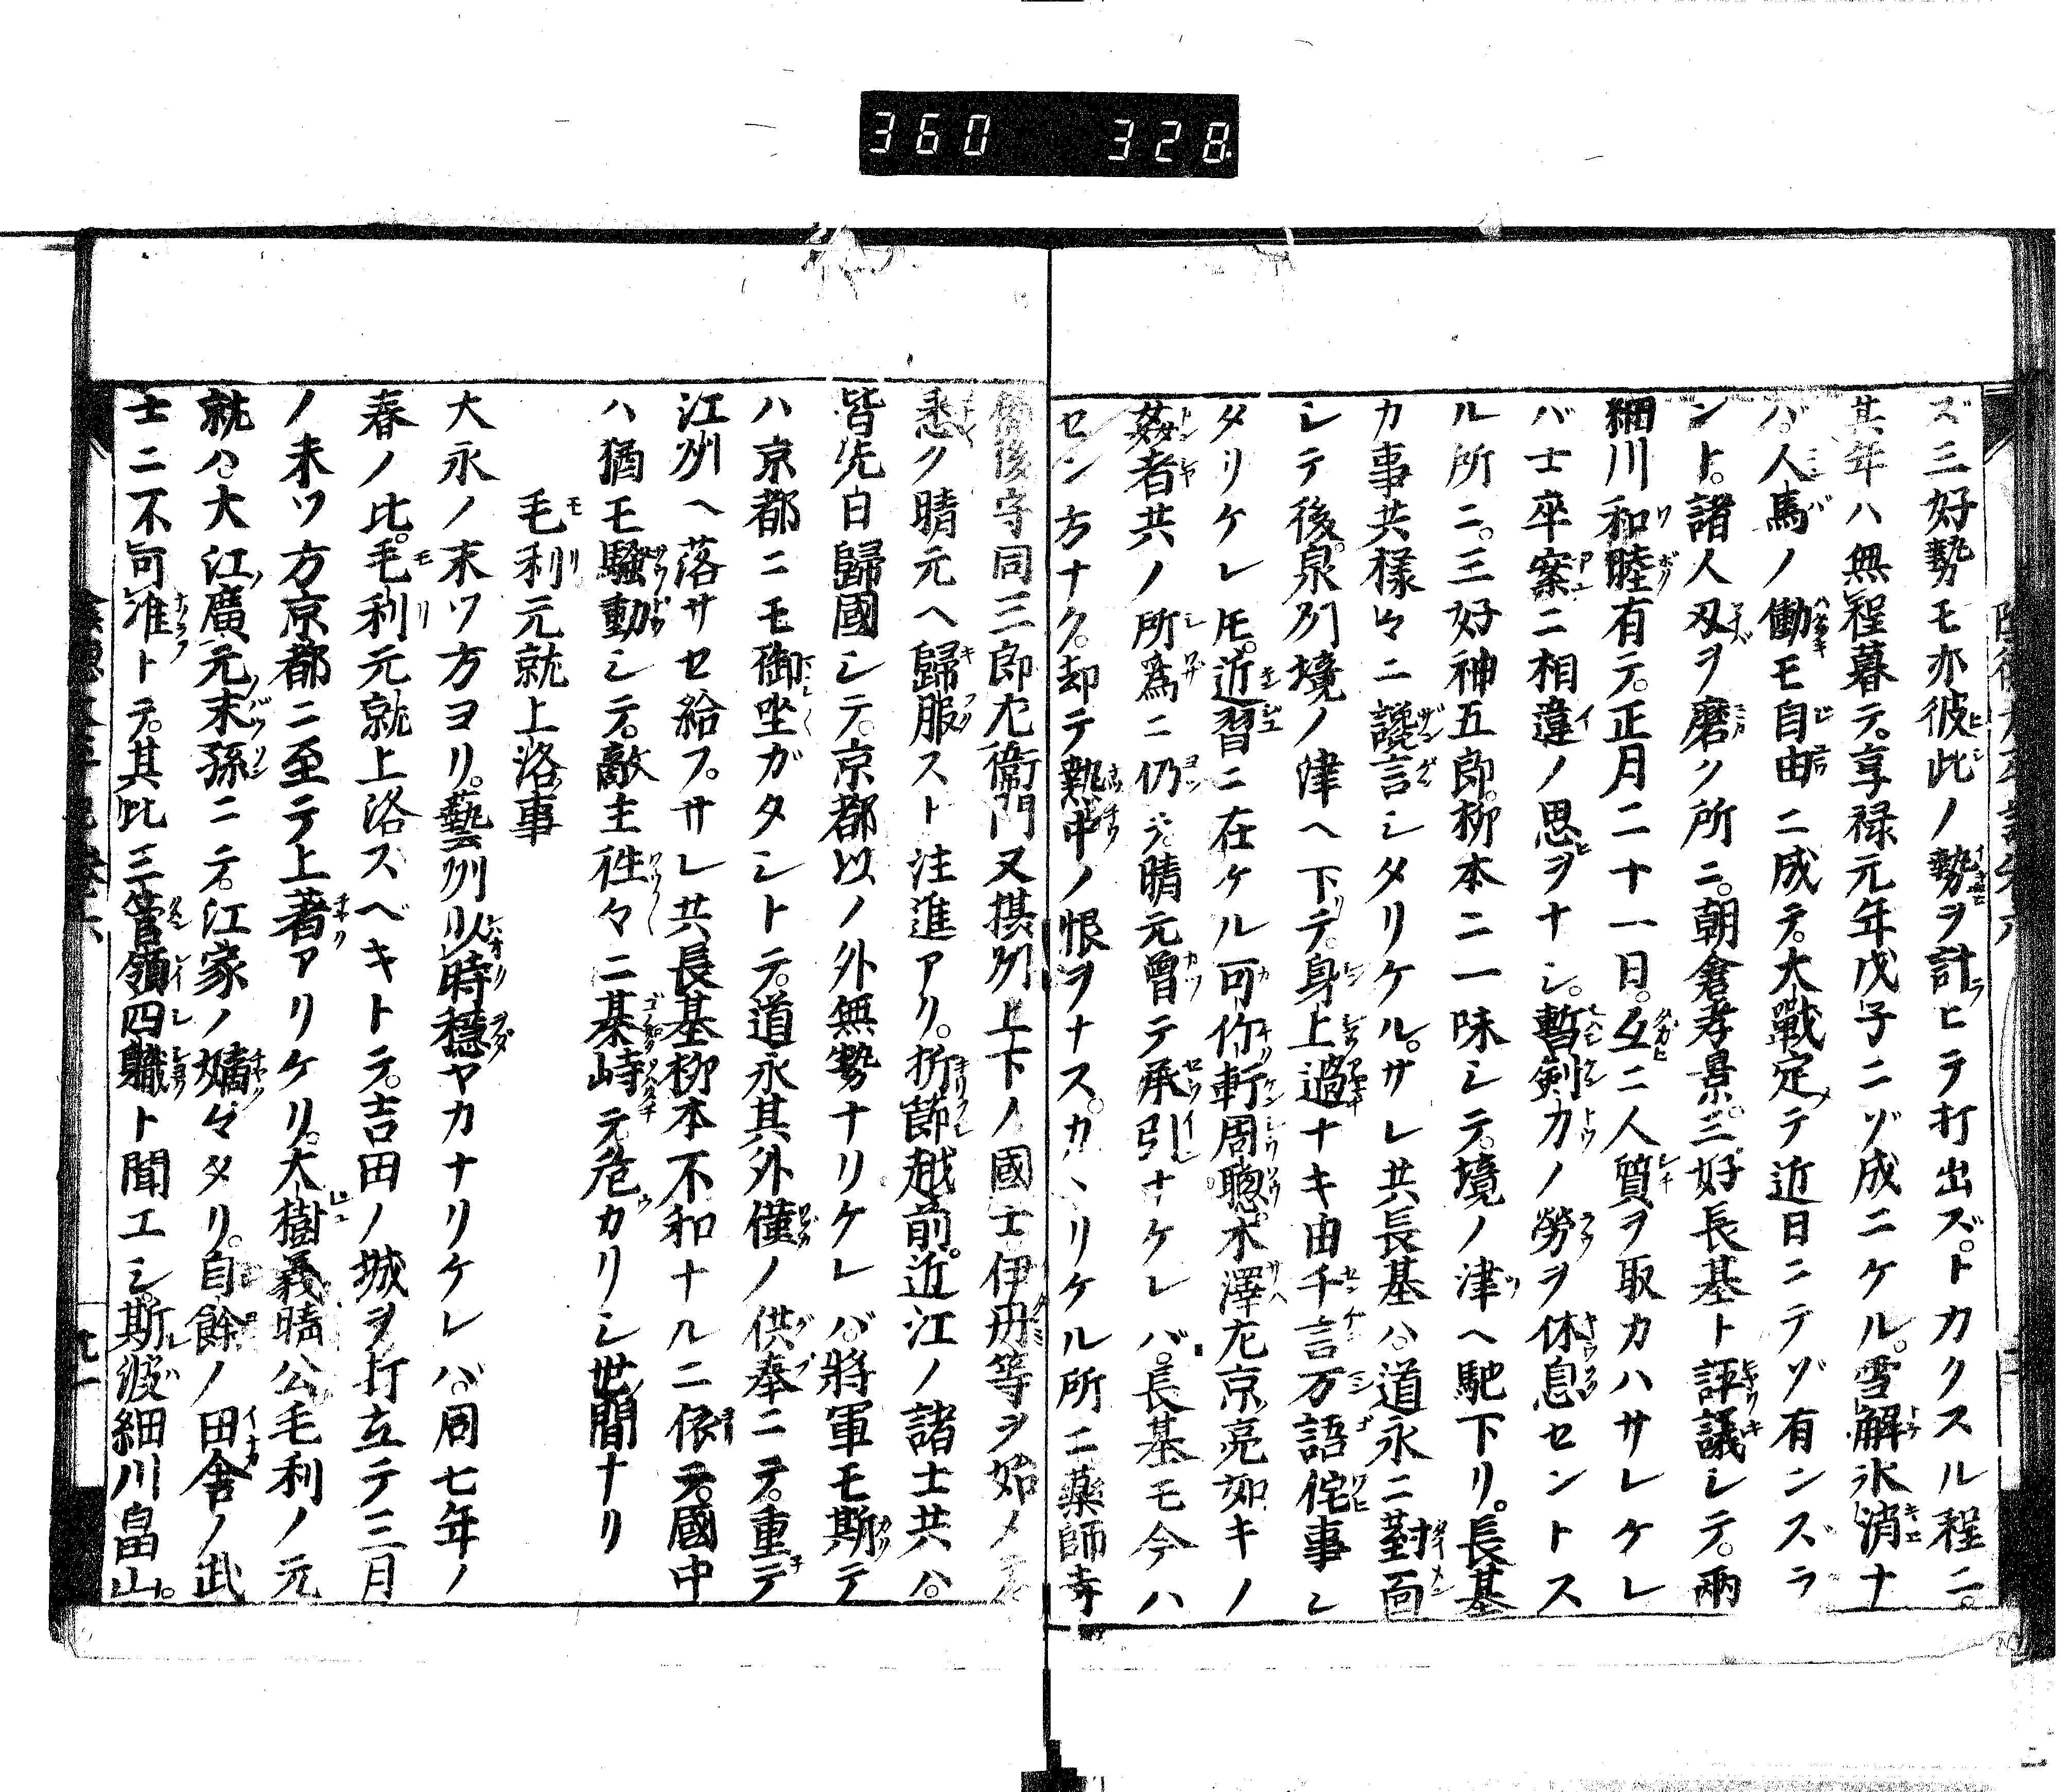 360 328
ズ三好勢モ亦彼此ノ勢ヲ計ヒテ打出ズ。トカクスル程ニ。
其年ハ無程暮テ。享禄元年戊子ニゾ成ニケル。雪解氷消ナ
バ。人馬ノ働モ自由ニ成テ。大戰定テ近日ニテゾ有ンズラ
ント。諸人刄ヲ磨ク所ニ。朝倉孝景。三好長基ト評議シテ。兩
細川和睦有テ。正月二十一日。互ニ人質ヲ取カハサレケレ
バ士卒案ニ相違ノ思ヲナシ。暫剣カノ勞ヲ休息セントス
ル所ニ。三好神五郎。柳本ニ一味シテ。境ノ津ヘ馳下リ。長基
カ事共樣々ニ讒言シタリケル。サレ共長基ハ。道永ニ對面
シテ後。泉州境ノ津ヘ下テ。身上過ナキ由千言万語侘事シ
タリケレ𪜈。近習ニ在ケル可竹軒周聰。木澤左京亮如キノ
姦者共ノ所爲ニ仍テ。晴元曾テ承引ナケレバ。長基モ今ハ
セン方ナク。却テ熱中ノ恨ヲナス。カヽリケル所ニ藥師寺
備後守同三郎左衞門又摂州上下ノ國士伊丹等ヲ始メテ
悉ク晴元ヘ歸服スト注進アリ。折節越前。近江ノ諸士共ハ。
皆先日歸國シテ。京都以ノ外無勢ナリケレバ。將軍モ斯テ
ハ京都ニモ御坐ガタシトテ。道永其外僅ノ供奉ニテ。重テ
江州ヘ落サセ給フ。サレ共長基柳本不和ナルニ依テ。國中
ハ猶モ騷動シテ。敵主徃々ニ棊峙テ危カリシ世間ナリ
毛利元就上洛事
大永ノ末ツ方ヨリ。藝州以時穩ヤカナリケレバ。同七年ノ
春ノ比。毛利元就上洛スベキトテ。吉田ノ城ヲ打立テ三月
ノ末ツ方京都ニ至テ上著アリケリ。大樹義晴公毛利ノ元
就ハ。大江廣元末孫ニテ。江家ノ嫡々タリ。自餘ノ田舍ノ武
士ニ不可准トテ。其比三管領四職ト聞エシ。斯波細川畠山。